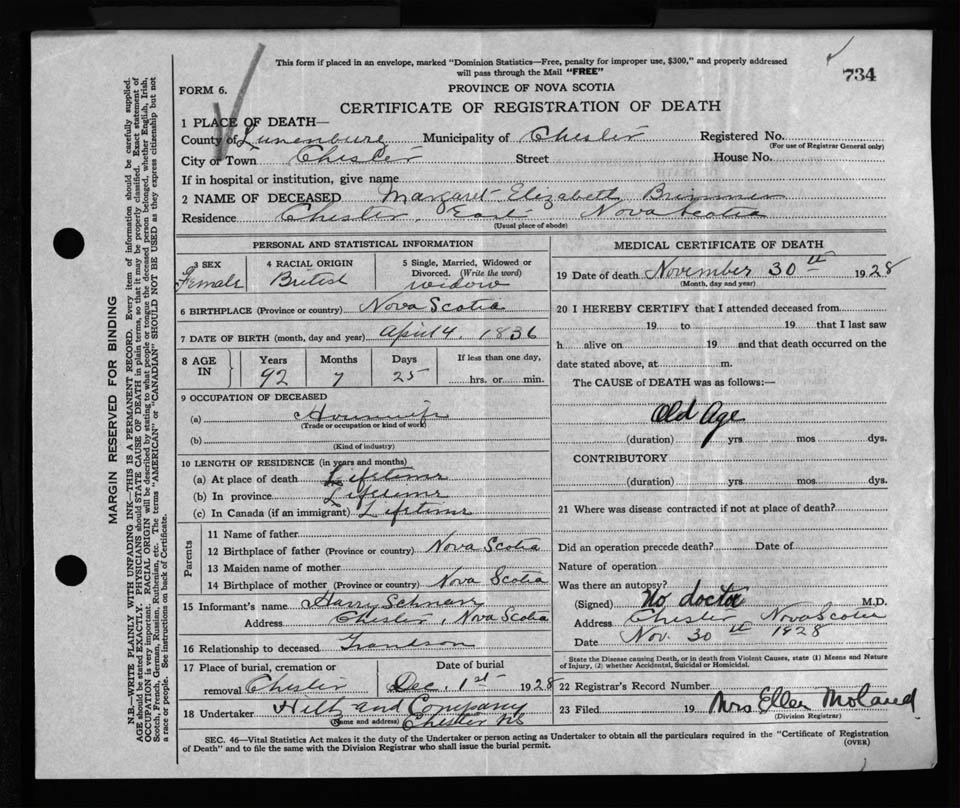 This form if placed in an envelope, marked "Dominion Statistics—Free, penalty for improper use, $300," and properly addressed
will pass through the Mail "FREE"
734
FORM 6.
PROVINCE OF NOVA SCOTIA
CERTIFICATE OF REGISTRATION OF DEATH
1 PLACE OF DEATH—
County of Lunenburg Municipality of Chester Registered No.
(For use of Registrar General only)
City or Town Chester Street House No.
If in hospital or institution, give name
2 NAME OF DECEASED Margaret Elizabeth
Residence Chester, East Nova Scotia
(Usual place of abode)
PERSONAL AND STATISTICAL INFORMATION
3 SEX Female
4 RACIAL ORIGIN British
5 Single, Married, Widowed or
Divorced. (Write the word)
widow
6 BIRTHPLACE (Province or country) Nova Scotia
7 DATE OF BIRTH (month, day and year) April 4, 1836
8 AGE IN Years Months Days If less than one day,
92 7 25 hrs. or min.
9 OCCUPATION OF DECEASED
(a) Housewife
(Trade or occupation or kind of work)
(b)
(Kind of industry)
10 LENGTH OF RESIDENCE (in years and months)
(a) At place of death Lifetime
(b) In province Lifetime
(c) In Canada (if an immigrant) Lifetime
Parents
11 Name of father
12 Birthplace of father (Province or country) Nova Scotia
13 Maiden name of mother
14 Birthplace of mother (Province or country) Nova Scotia
15 Informant's name Harry
Address Chester, Nova Scotia
16 Relationship to deceased Grandson
17 Place of burial, cremation or Date of burial
removal Chester Dec. 1st 1928
18 Undertaker Hilt and Company
(Name and address) Chester NS
MEDICAL CERTIFICATE OF DEATH
19 Date of death November 30th 1928
(Month, day and year)
20 I HEREBY CERTIFY that I attended deceased from
19 to 19 that I last saw
h alive on 19 and that death occurred on the
date stated above, at m.
The CAUSE of DEATH was as follows:—
Old Age
(duration) yrs. mos. dys.
CONTRIBUTORY
(duration) yrs. mos. dys.
21 Where was disease contracted if not at place of death?
Did an operation precede death? Date of
Nature of operation
Was there an autopsy?
(Signed) No doctor M.D.
Address Chester Nova Scotia
Date Nov. 30th 1928
State the Disease causing Death, or in death from Violent Causes, state (1) Means and Nature
of Injury, (2) whether Accidental, Suicidal or Homicidal.
22 Registrar's Record Number
23 Filed 19 Mrs Ellen Moland
(Division Registrar)
SEC. 46—Vital Statistics Act makes it the duty of the Undertaker or person acting as Undertaker to obtain all the particulars required in the "Certificate of Registration
of Death" and to file the same with the Division Registrar who shall issue the burial permit.
(OVER)
MARGIN RESERVED FOR BINDING
N.B.—WRITE PLAINLY WITH UNFADING INK—THIS IS A PERMANENT RECORD. Every item of information should be carefully supplied.
AGE should be stated EXACTLY. PHYSICIANS should STATE CAUSE OF DEATH in plain terms, so that it may be properly classified. Exact statement of
OCCUPATION is very important. RACIAL ORIGIN will be described by stating to what people or tongue the deceased person belonged, whether English, Irish,
Scotch, French, German, Russian, Ruthenian, etc. The terms "AMERICAN" or "CANADIAN" SHOULD NOT BE USED as they express citizenship but not
a race or people. See instructions on back of Certificate.